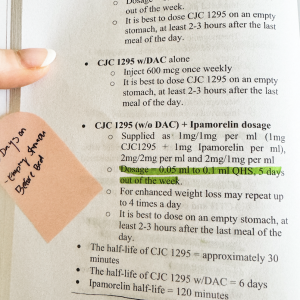 Dosage
out of the week.
It is best to dose CJC 1295 on an empty
stomach, at least 2-3 hours after the last
meal of the day.
CJC 1295 w/DAC alone
Inject 600 mcg once weekly
It is best to dose CJC 1295 on an empty
stomach, at least 2-3 hours after the last
meal of the day.
CJC 1295 (w/o DAC) + Ipamorelin dosage
Supplied as 1mg/1mg per ml (1mg
CJC1295 + 1mg Ipamorelin per ml),
2mg/2mg per ml and 2mg/1mg per ml
Dosage = 0.05 ml to 0.1 ml QHS, 5 days
out of the week.
For enhanced weight loss may repeat up
to 4 times a day
It is best to dose on an empty stomach, at
least 2-3 hours after the last meal of the
day.
The half-life of CJC 1295 = approximately 30
minutes
The half-life of CJC 1295 w/DAC = 6 days
Ipamorelin half-life = 120 minutes
on
Empty
Before Bed